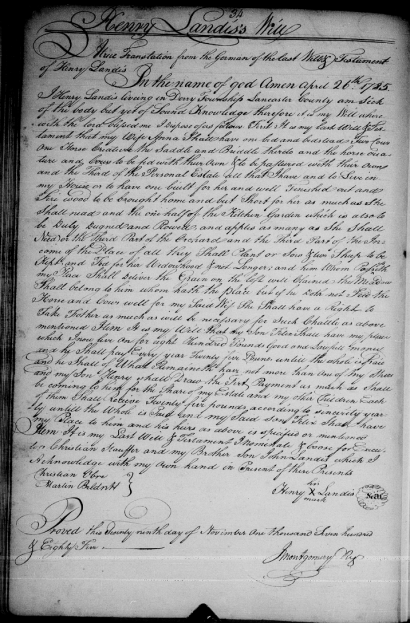 34
Henry Landis's Will
A True Translation from the German of the last Will & Testament
of Henry Landis
In the name of god Amen April 26th 1785
I Henry Landis living in Derry Township Lancaster County am Sick
of the body but yet of Sound Knowledge therefore it is my Will where
with the lord Dispose as follows First It is my last Will &
tament that my Wife Anna Shall have one bed and bedstead Two Cows
One Horse Creature the Saddle and Bridle thereto and the horse crea
ture and Cows to be fed with their own & to be pastered with their own
and the third of the Personal Estate all that I have and to Live in
my House or to have one built for her and well finished out and
fire wood to be brought home and Cut Short for her as much as She
Shall need and the one half of the Kitchen Garden which is also to
be Duly Dunged and Plowed and apples as many as She Shall
Need or the Third Part of the Orchard and the Third Part of the In
come of the Place of all they Shall Plant or Sow & two Sheep to be
Kept and Fed
my Place Shall deliver the Grain
Shall belong to him whom hath the Place
Horse and Cows well for my Said Wife She Shall have a Right to
Take Fother as much as will be necessary for Such Chattle as above
mentioned Item It is my Will that my Son Felix Shall have my Place
which I now live on for eight Hundred Pounds Good and Lawful money
and he Shall Pay Every year Twenty five Pounds untill the whole is paid
and he Shall of What Remaineth have not more than One of my Shares
and my Son Henry Shall Draw the first Payment as much as Shall
be coming to him for the Share of my Estate and my other Children Each
of them Shall receive Twenty five pounds according to sincerity year
ly untill the Whole is Paid and my Said Son Felix Shall have
my Place to him and his heirs as above is specified or mentioned
Item It is my Last Will & Testament I nominate & name for Execu
tors Christian Stauffer and my Brother Son John Landis which I
Acknowledge with my own hand in Present of these Presents
Christian
Martin
his
Henry X Landis
mark
Seal
Proved this Twenty ninth day of November One thousand Seven hundred
& Eighty five
J Montgomery Reg